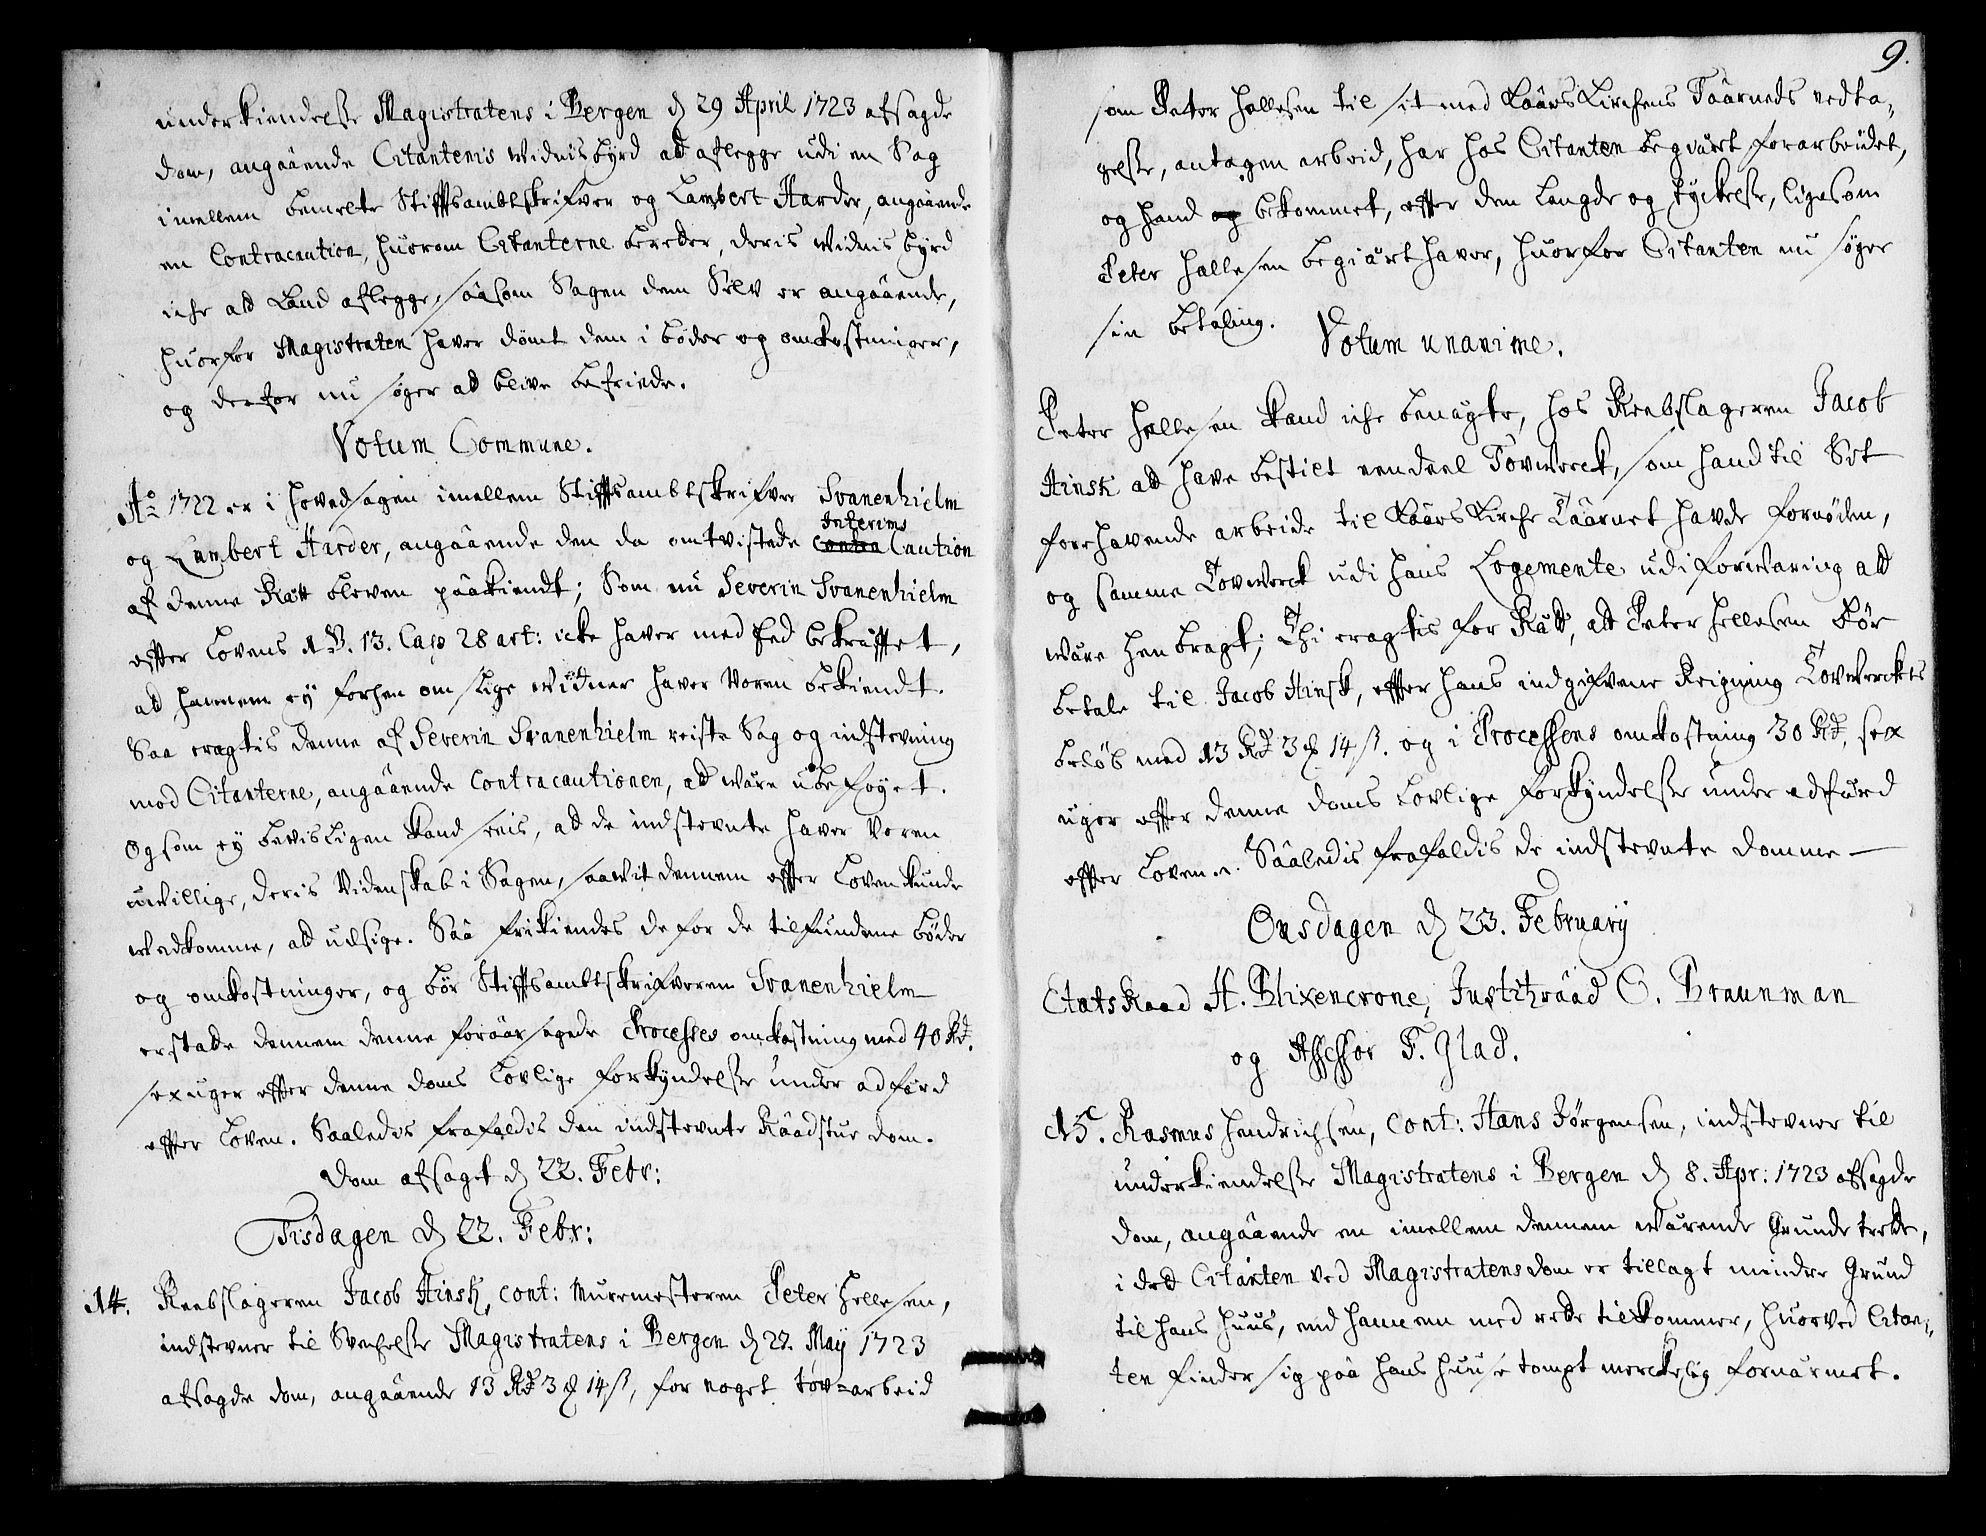 underkiendelsse Magistratens i Bergen d 29 April 1723 afsagde
dom, angaaende Citantenis Widnisbyrd at aflegge udi en Sag
imellem bemelte Stiftsambtskrifver og Lambert Harder, angaaende
en Contracaution, huorom Citanterne bereder, deris Widnis byrd
iche at kand aflegge, saasom Sagen dem Selv er angaaende,
huorfor Magistraten haver dömt dem i böder og omkostninger,
og derfor nu söger at blive befriede.
Votum Commune.
Ao 1722 er i hovedsagen imellem Stiftsambtskrifver Svanenhielm
og Lambert Harder, angaaende den da omtvistede Contra Interims Caution
af denne Rätt bleven paakiendt; Som nu Severin Svanenhielm
efter Lovens 1 B. 13. Cap 28 art: icke haver med Eed bekräfftet,
at hannem ey forhen om slige Widner haver Voren bekiendt.
Saa eragtis denne af Severin Svanenhielm reiste Sag og indstevning
mod Citanterne, angaaende Contracautionen, at wäre ubeföyet.
Og som ey bevisligen kand seeis, at de indstevnte haver Voren
uwillige, deris Videnskab i Sagen, saawit dennem efter Loven kunde
wedkomme, at udsige. Saa frikiendes de for de tilfundene böder
og omkostninger, og bör Stiftsambtskrifveren Svanenhielm
erstatte dennem denne foraarsagede Processes omkostning med 40 Rd.
sex uger efter denne doms Lovlige forkyndelsse under adfärd
efter Loven. Saaledis frafaldis den indstevnte Raadstue dom.
Dom afsagt d 22. Febr:
Tisdagen d 22. Febr:
14. Reebslageren Jacob Hinsk, cont: Muermesteren Peter Hellesen,
indstevner til Svechelsse Magistratens i Bergen d 27. Maij 1723
afsagde dom, angaaende 13 Rd 3 ꝗ 14 ß, for noget tov-arbeid
9.
som Peter Hellesen til sit med Kaars Kirchens Taarneds vedta-
gelsse, antagen arbeid, har hos Citanten begiärt forarbeidet,
og hand og bekommet, efter den Längde og tyckelsse, ligesom
Peter Hellesen begiärt haver, huorfor Citanten nu söger
sin betaling.
Votum unanime.
Peter Hellesen kand iche benägte, hos Reebslageren Jacob
Hinsk at have bestilt een deel Tovwerck, som hand til Sit
forehavende arbeide til Kaars Kirche Taarnet havde fornöden,
og samme Tovwerck udi hans Logemente udi forwaring at
wäre hen bragt; Thi eragtis for Rätt, at Peter Hellesen bör
betale til Jacob Hinsk, efter hans indgifvene Reigning Tovwerckets
belöb med 13 Rd 3 ꝗ 14 ß. og i Processens omkostning 30 Rd, sex
uger efter denne doms Lovlige forkyndelsse under adfärd
efter Loven. Saaledis frafaldis de indstevnte domme —
Onsdagen d 23. February
Etats Raad H. Blixencrone, Justitzraad C. Braunman
og Assessor F. Glad.
15. Rasmus Hendrichsen, cont: Hans Jörgensen, indstevner til
underkiendelsse Magistratens i Bergen d 8. Apr: 1723 afsagde
dom, angaaende en imellem dennem wärende Grunde trette,
i det Citanten ved Magistratens dom er tillagt mindre Grund
til hans huus, end hannem med rette tilkommer, huorved Citan-
ten finder sig paa hans huuse tompt merckelig fornärmet.